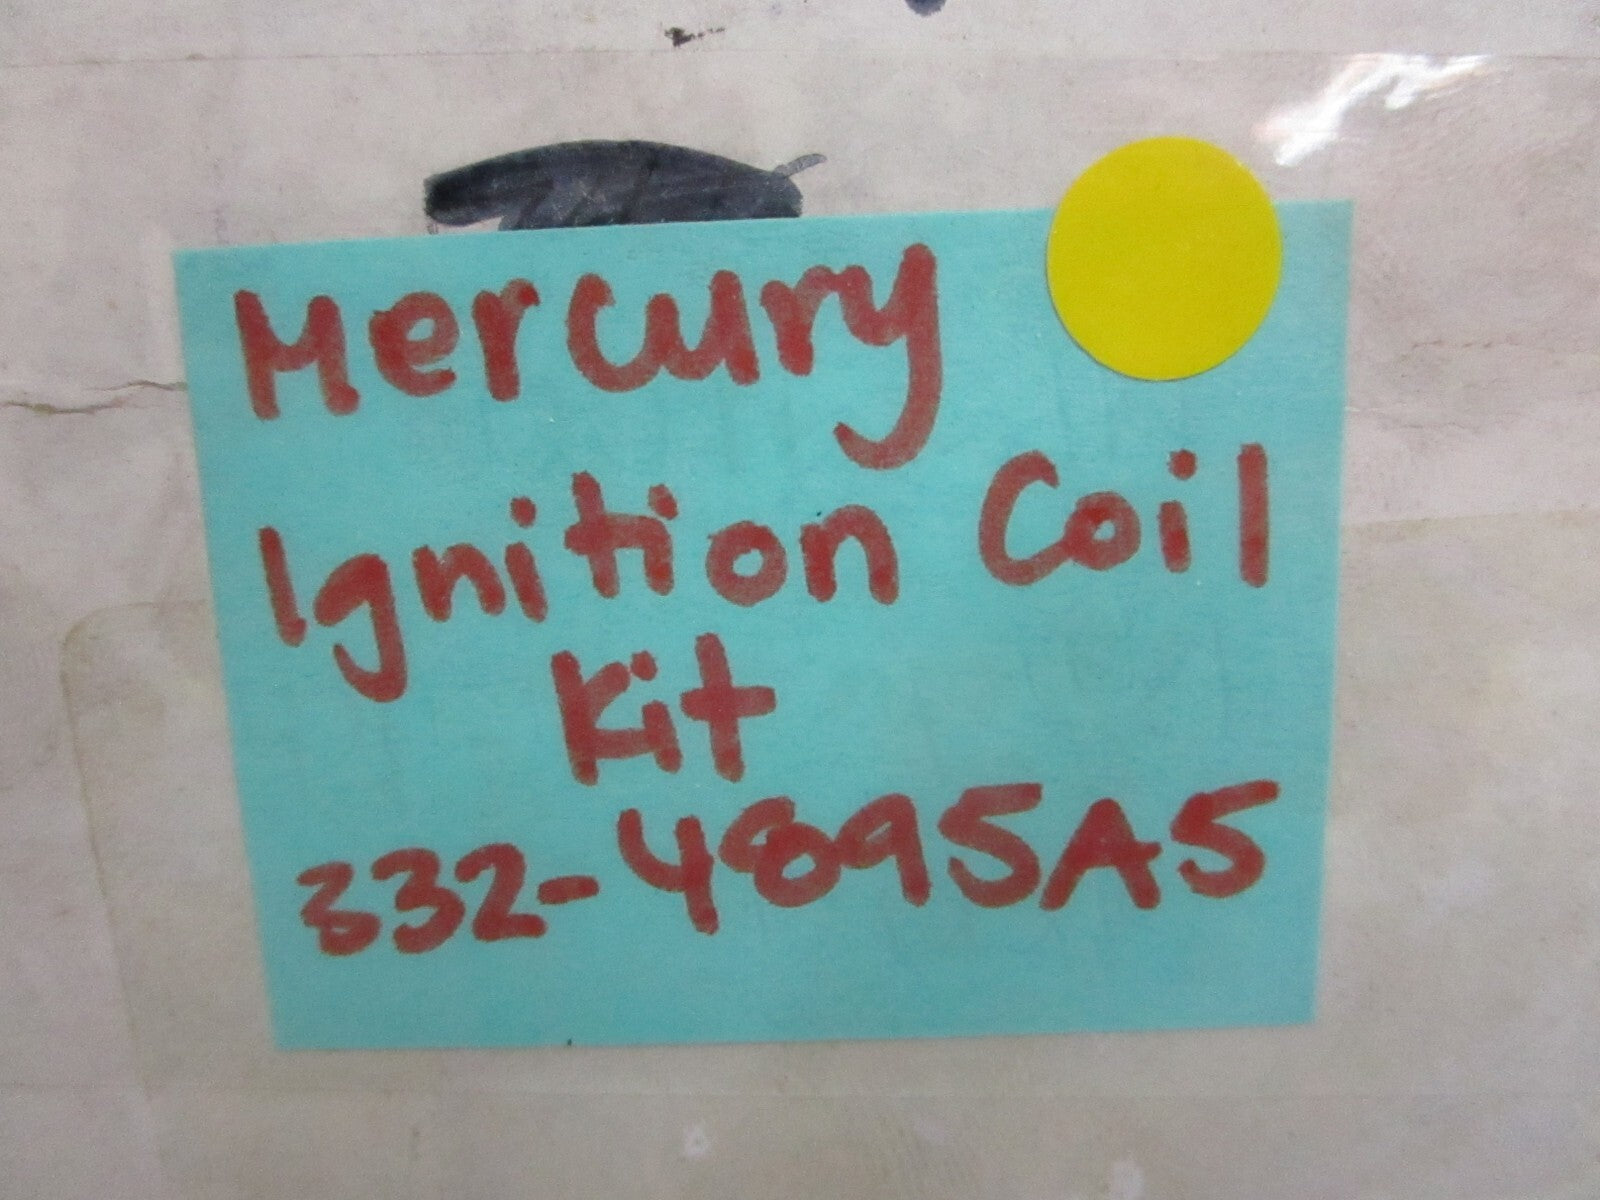 Mercury
Ignition Coil
Kit
332-4895A5